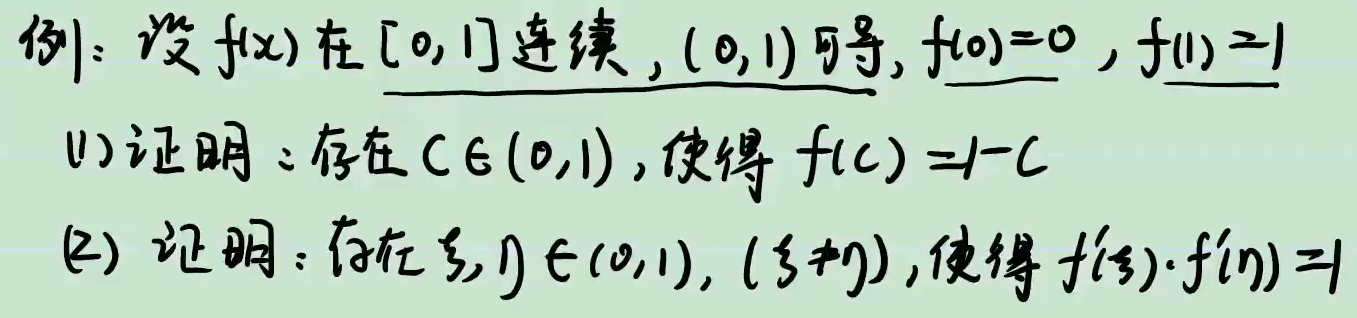 例: 设 f(x) 在 [0,1] 连续, (0,1) 可导, f(0)=0, f(1)=1
(1) 证明: 存在 C∈(0,1), 使得 f(C)=1-C
(2) 证明: 存在 ξ,η∈(0,1), (ξ≠η), 使得 f'(ξ)·f'(η)=1